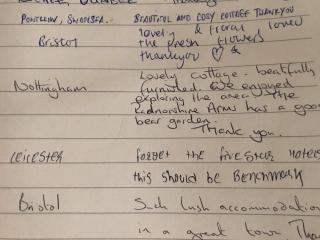 PONTCLLIN, SWANSEA. BEAUTIFUL AND COSY COTTAGE THANKYOU
lovely & floral loved
Bristol the fresh flowers
thankyou ♡ &
Lovely cottage. beatifully
Nottingham furnished. We enjoyed
exploring the area & the
Radnorshire Arms has a good
bear garden.
Thank you.
Leicester forget the five star Hotels
this should be Benchmark
Bristol Such lush accommodation
in a great town